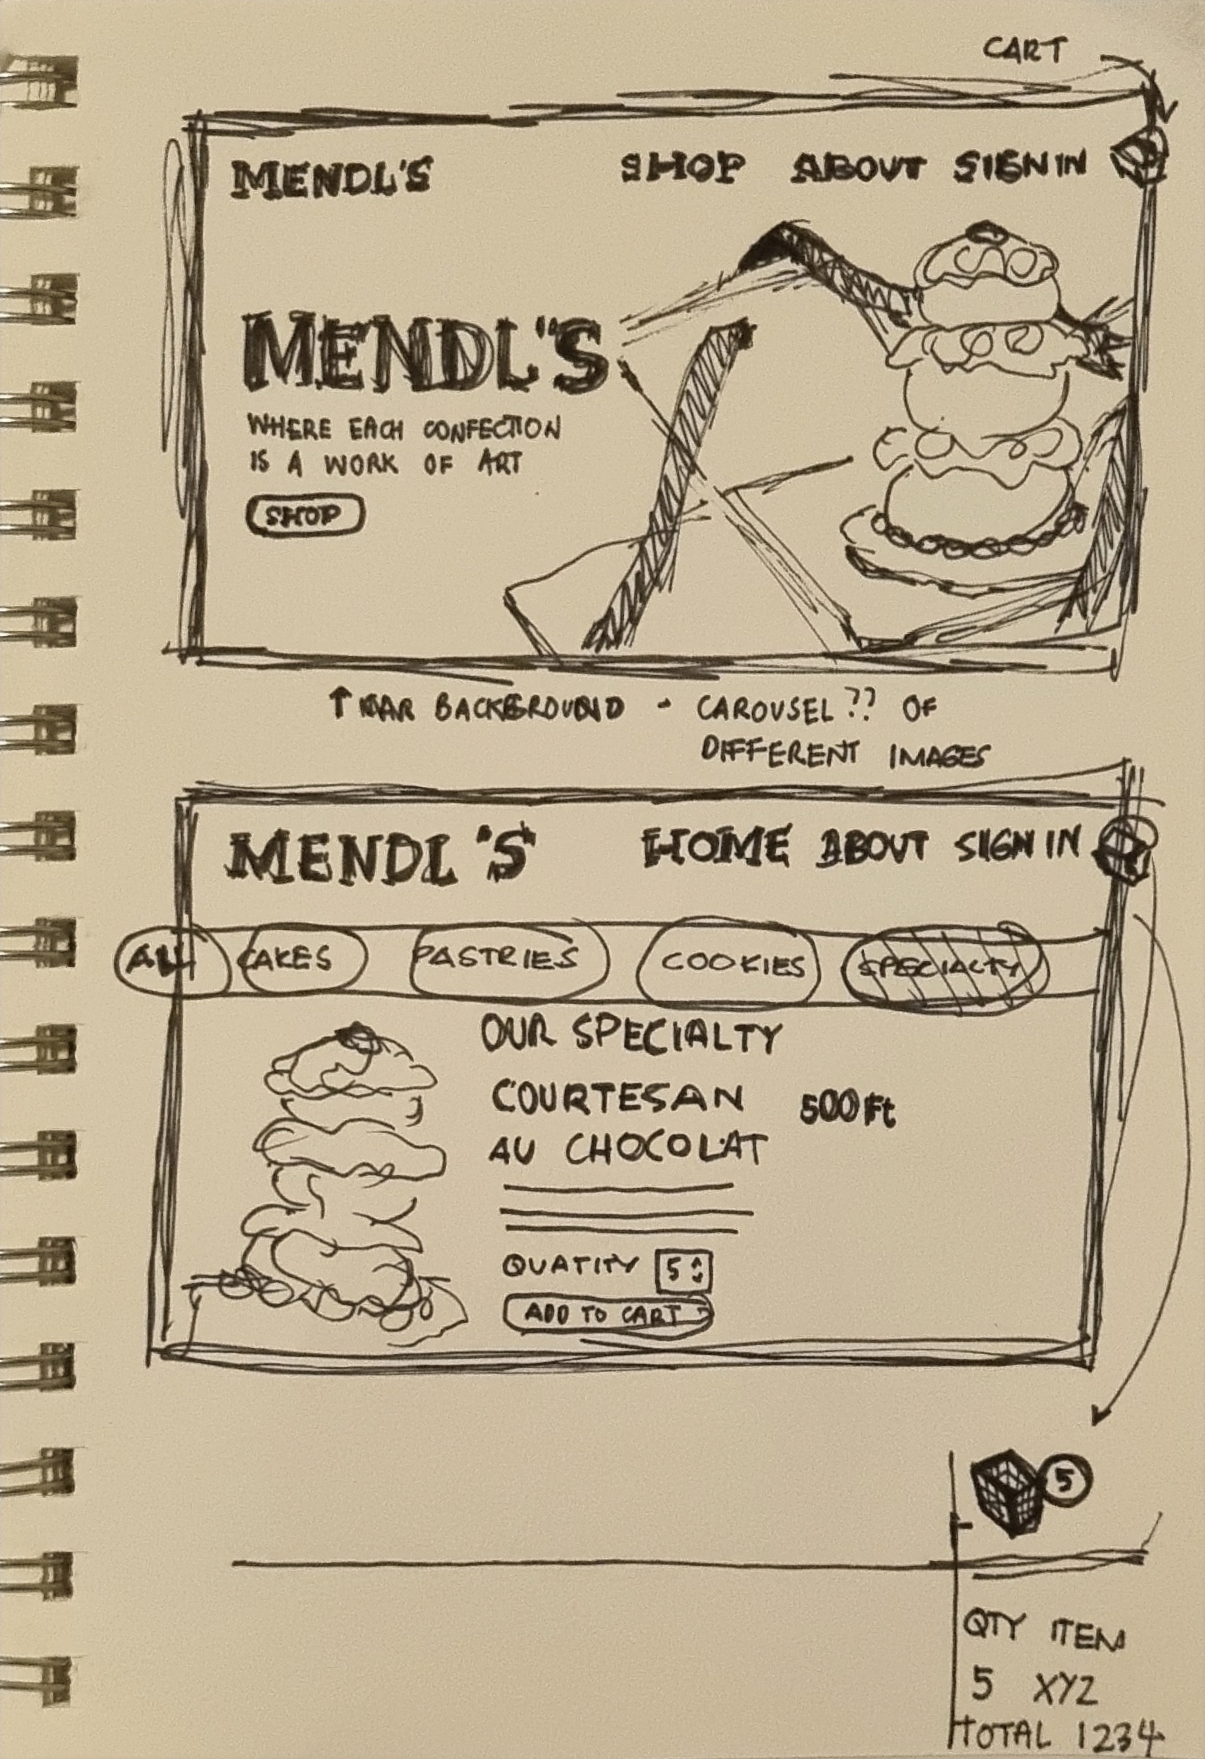 CART
MENDL'S SHOP ABOUT SIGN IN
MENDL'S
WHERE EACH CONFECTION
IS A WORK OF ART
SHOP
↑ BACKGROUND - CAROUSEL?? OF
DIFFERENT IMAGES
MENDL'S HOME ABOUT SIGN IN
ALL CAKES PASTRIES COOKIES SPECIALTY
OUR SPECIALTY
COURTESAN 500 Ft
AU CHOCOLAT
QUATITY 5
ADD TO CART
5
QTY ITEM
5 XYZ
TOTAL 1234